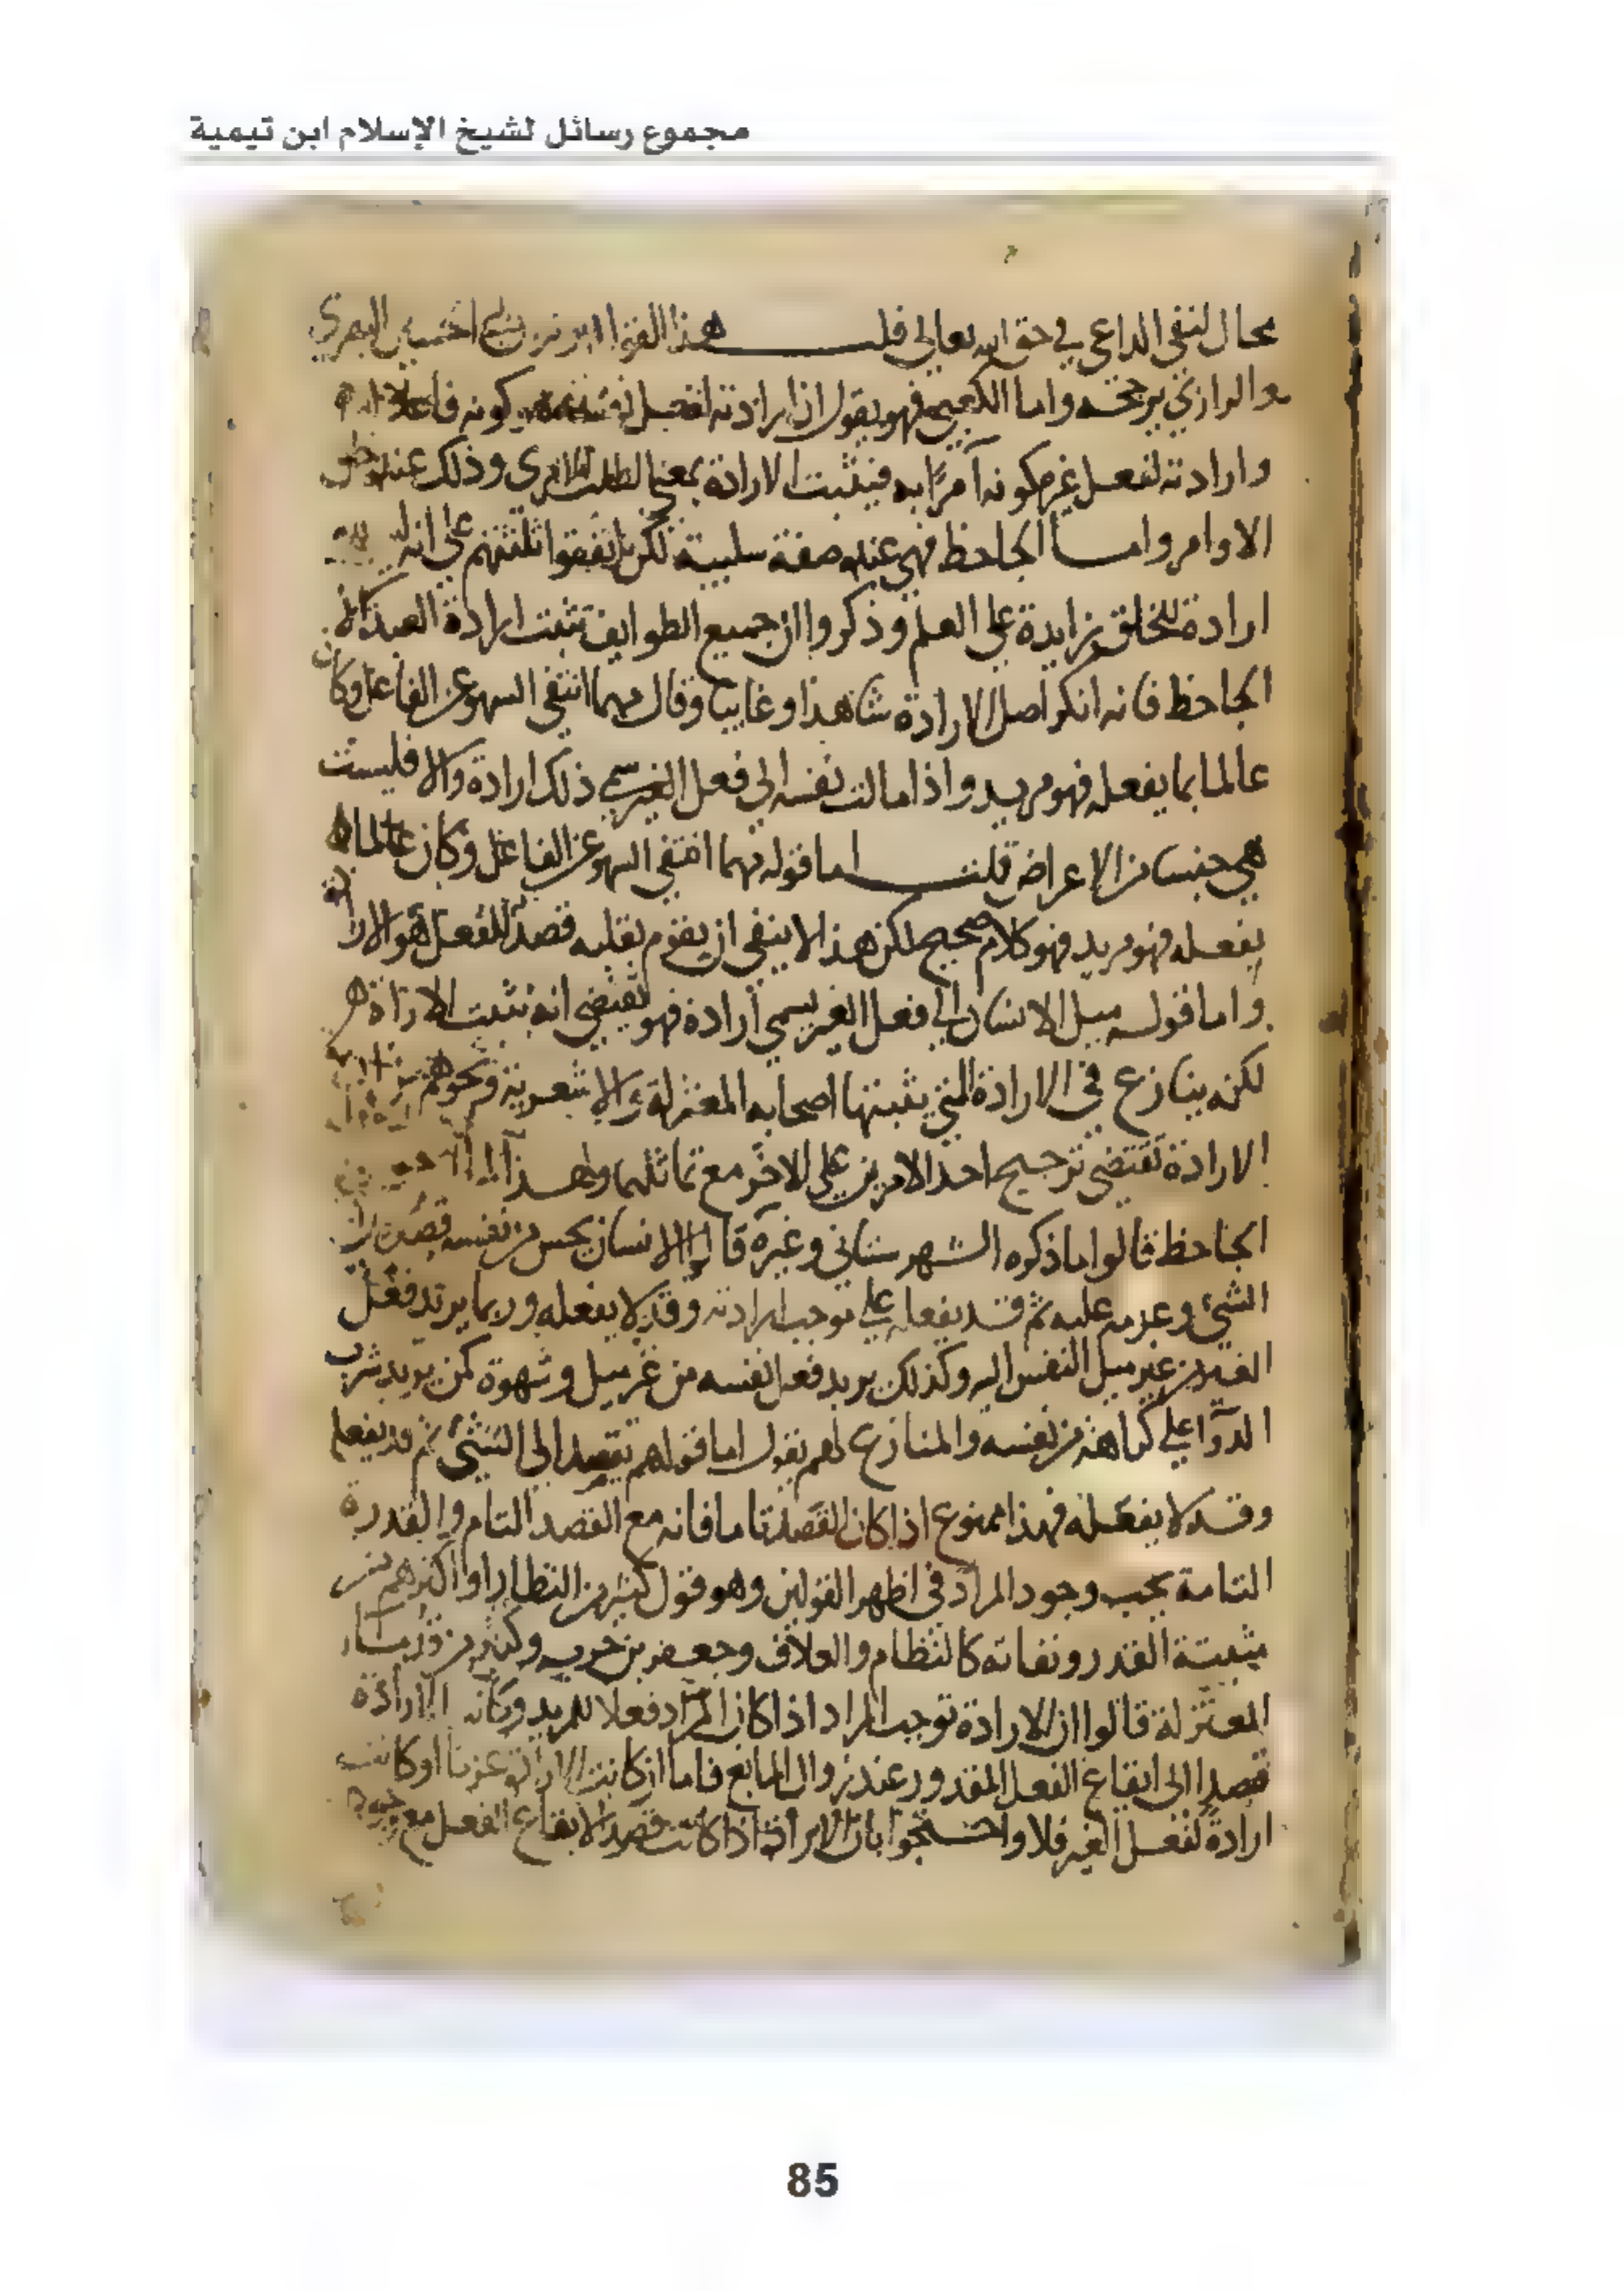 مجموع رسائل لشيخ الإسلام ابن تيمية
محال لنفي الداعي في حق الله تعالى قلت هذا القول الحسين البصري
والرازي يرجحه واما الكعبي فهو يقول ان ارادته لفعل كونه فاعلا
وارادته لفعل غيره كونه آمرًا به فيثبت الارادة بمعنى الطلب وذلك عنده
الاوامر واما الجاحظ فهي عنده صفة سلبية لكن اتفقوا ثلثتهم على انه
ارادة للخلق زايدة على العلم وذكروا ان جميع الطوايف تثبت ارادة العبد الا
الجاحظ فانه انكر اصل الارادة شاهدا وغايبا وقال مهما انتفى السهو عن الفاعل وكان
عالما بما يفعله فهو مريد واذا مالت نفسه الى فعل الغير سمي ذلك ارادة والا فليست
هي جنسا من الاعراض قلت اما قوله مهما انتفى السهو عن الفاعل وكان عالما
يفعله فهو مريد فهو كلام صحيح لكن هذا لا ينفي ان يقوم بقلبه قصد للفعل هو
واما قوله ميل الانسان الى فعل الغير يسمي ارادة فهو يقتضي انه يثبت
لكنه ينازع في الارادة التي يثبتها اصحابه المعتزلة والاشعرية ونحوهم
الارادة تقتضي ترجيح احد الامرين على الاخر مع تماثلهما ولهذا
الجاحظ قالوا ما ذكره الشهرستاني وغيره قالوا الانسان يحس من نفسه
الشيء وعزمه عليه ثم قد يفعله على موجب ارادته وقد لا يفعله وربما يريد فعل
الغير من غير ميل النفس اليه وكذلك يريد فعل نفسه من غير ميل وشهوة كمن يريد شرب
الدوا على كراهة من نفسه والمنازع لهم يقول اما قولهم يقصد الى الشيء ثم قد يفعله
وقد لا يفعله فهذا ممنوع اذا كان القصد تاما فانه مع القصد التام والقدرة
التامة يجب وجود المراد في اظهر القولين وهو قول كثير من النظار او اكثرهم من
مثبتة القدر ونفاته كالنظام والعلاف وجعفر بن حرب وكثير من
المعتزلة قالوا ان الارادة توجب المراد اذا كان المراد فعلا للمريد وكانت الارادة
قصدا الى ايقاع الفعل المقدور عند زوال المانع فاما ان كانت الارادة عزما او كانت
ارادة لفعل الغير فلا واحتجوا بان الارادة اذا كانت قصد الايقاع الفعل مع
85